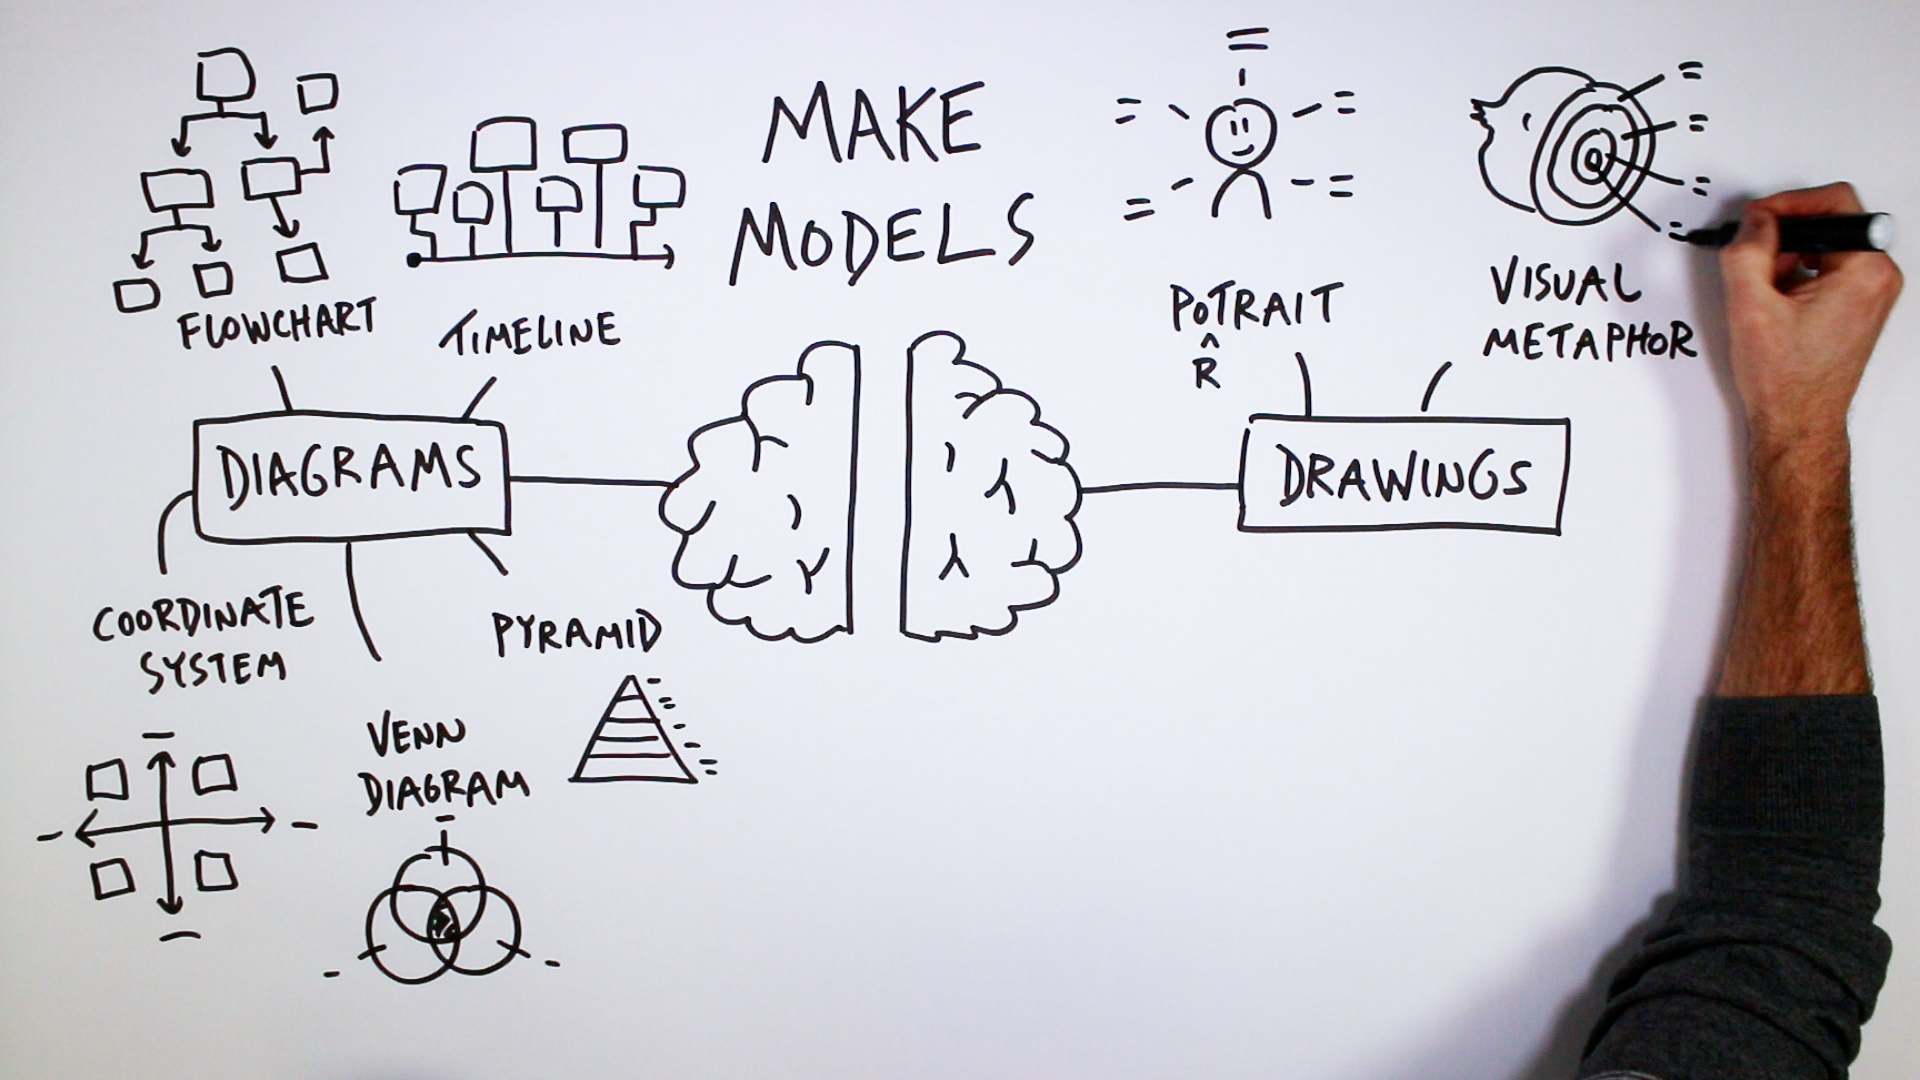 MAKE
MODELS
FLOWCHART
TIMELINE
DIAGRAMS
COORDINATE
SYSTEM
VENN
DIAGRAM
PYRAMID
POTRAIT
^
R
VISUAL
METAPHOR
DRAWINGS